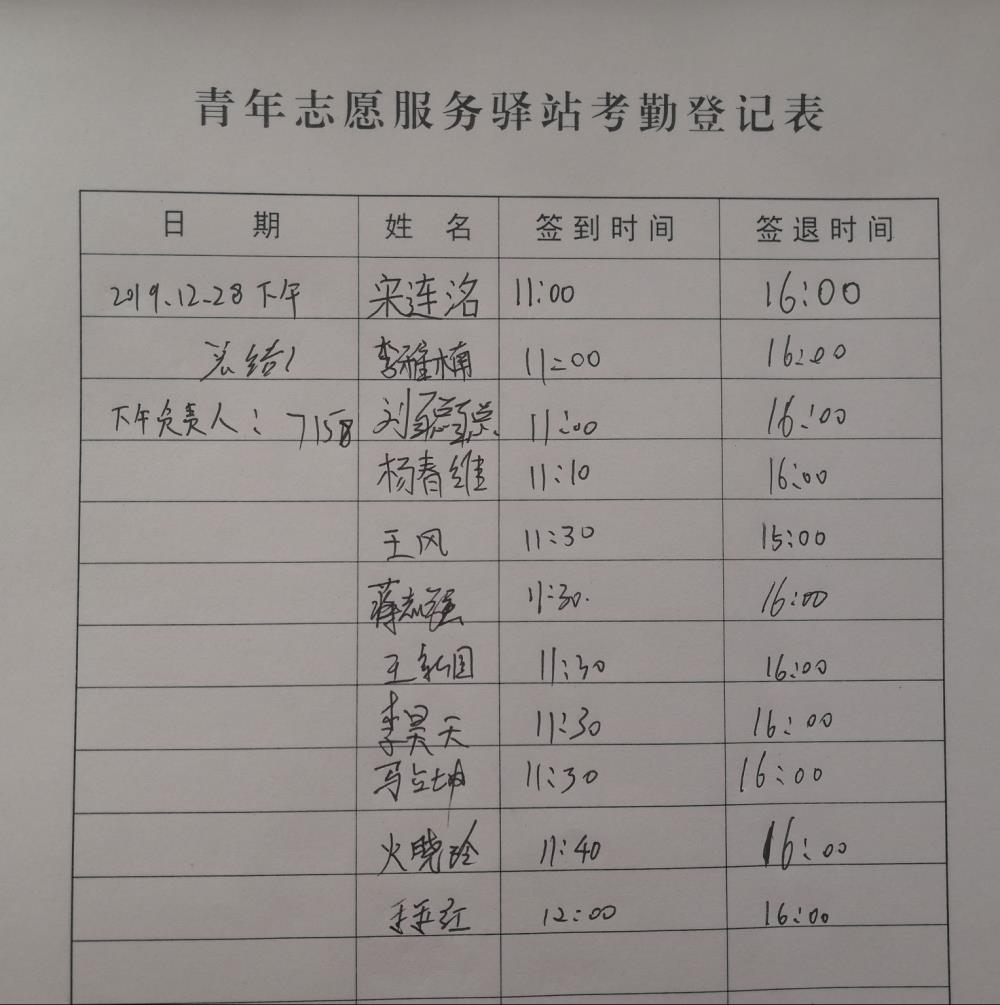 青年志愿服务驿站考勤登记表
日 期 姓 名 签到时间 签退时间
2019.12.28下午 宋连洺 11:00 16:00
李雅楠 11:00 16:00
下午负责人: 7158 刘聪聪 11:00 16:00
杨春维 11:10 16:00
王风 11:30 15:00
蒋志强 11:30. 16:00
王新国 11:30 16:00
李昊天 11:30 16:00
马占坤 11:30 16:00
火晓玲 11:40 16:00
12:00 16:00